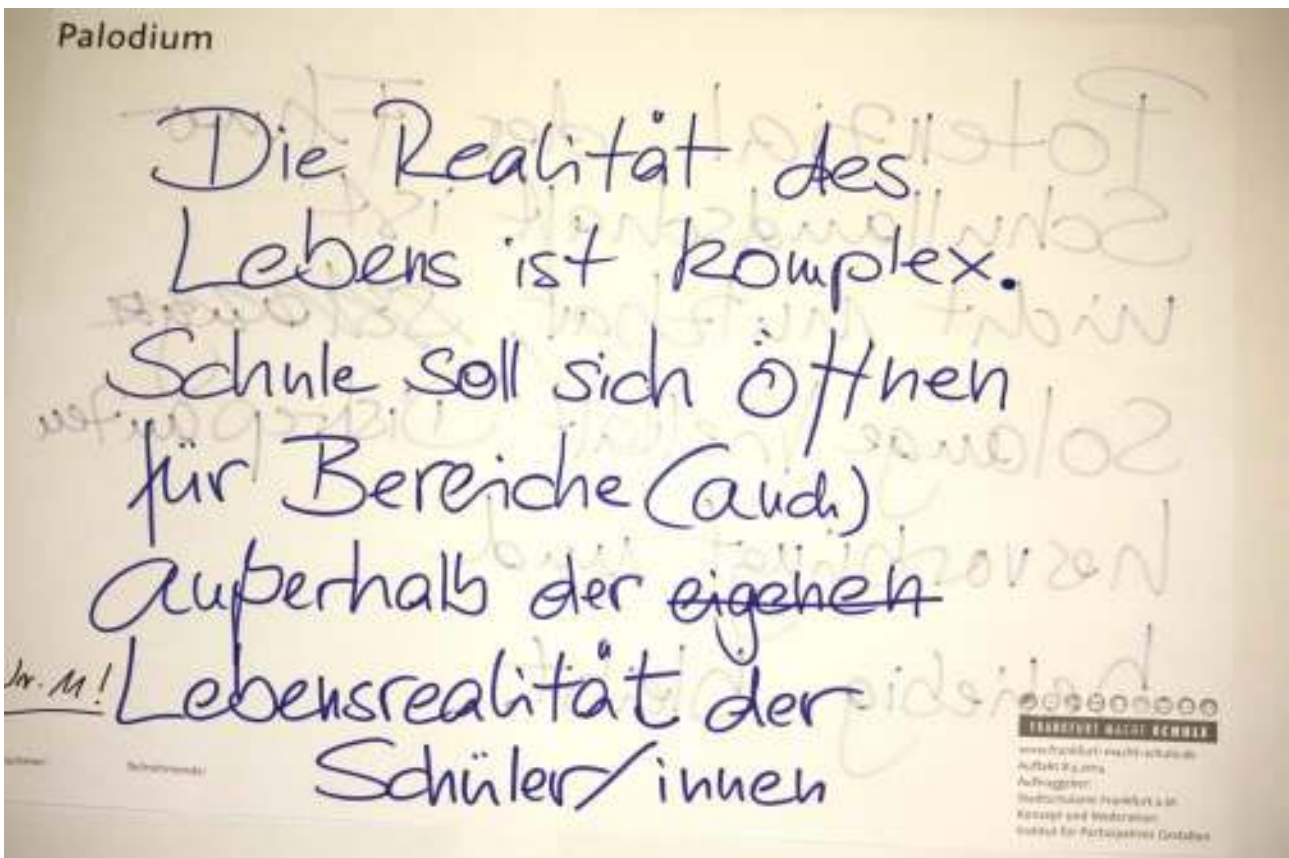 Palodium
Die Realität des
Lebens ist komplex.
Schule soll sich öffnen
für Bereiche (auch)
außerhalb der eigenen
Lebensrealität der
Schüler/innen
Nr. 11!
Teilnehmende:
FRANKFURT MACHT SCHULE
www.frankfurt-macht-schule.de
Auftraggeber:
Stadtschulamt Frankfurt a.M.
Konzept und Moderation:
Institut für Partizipatives Gestalten